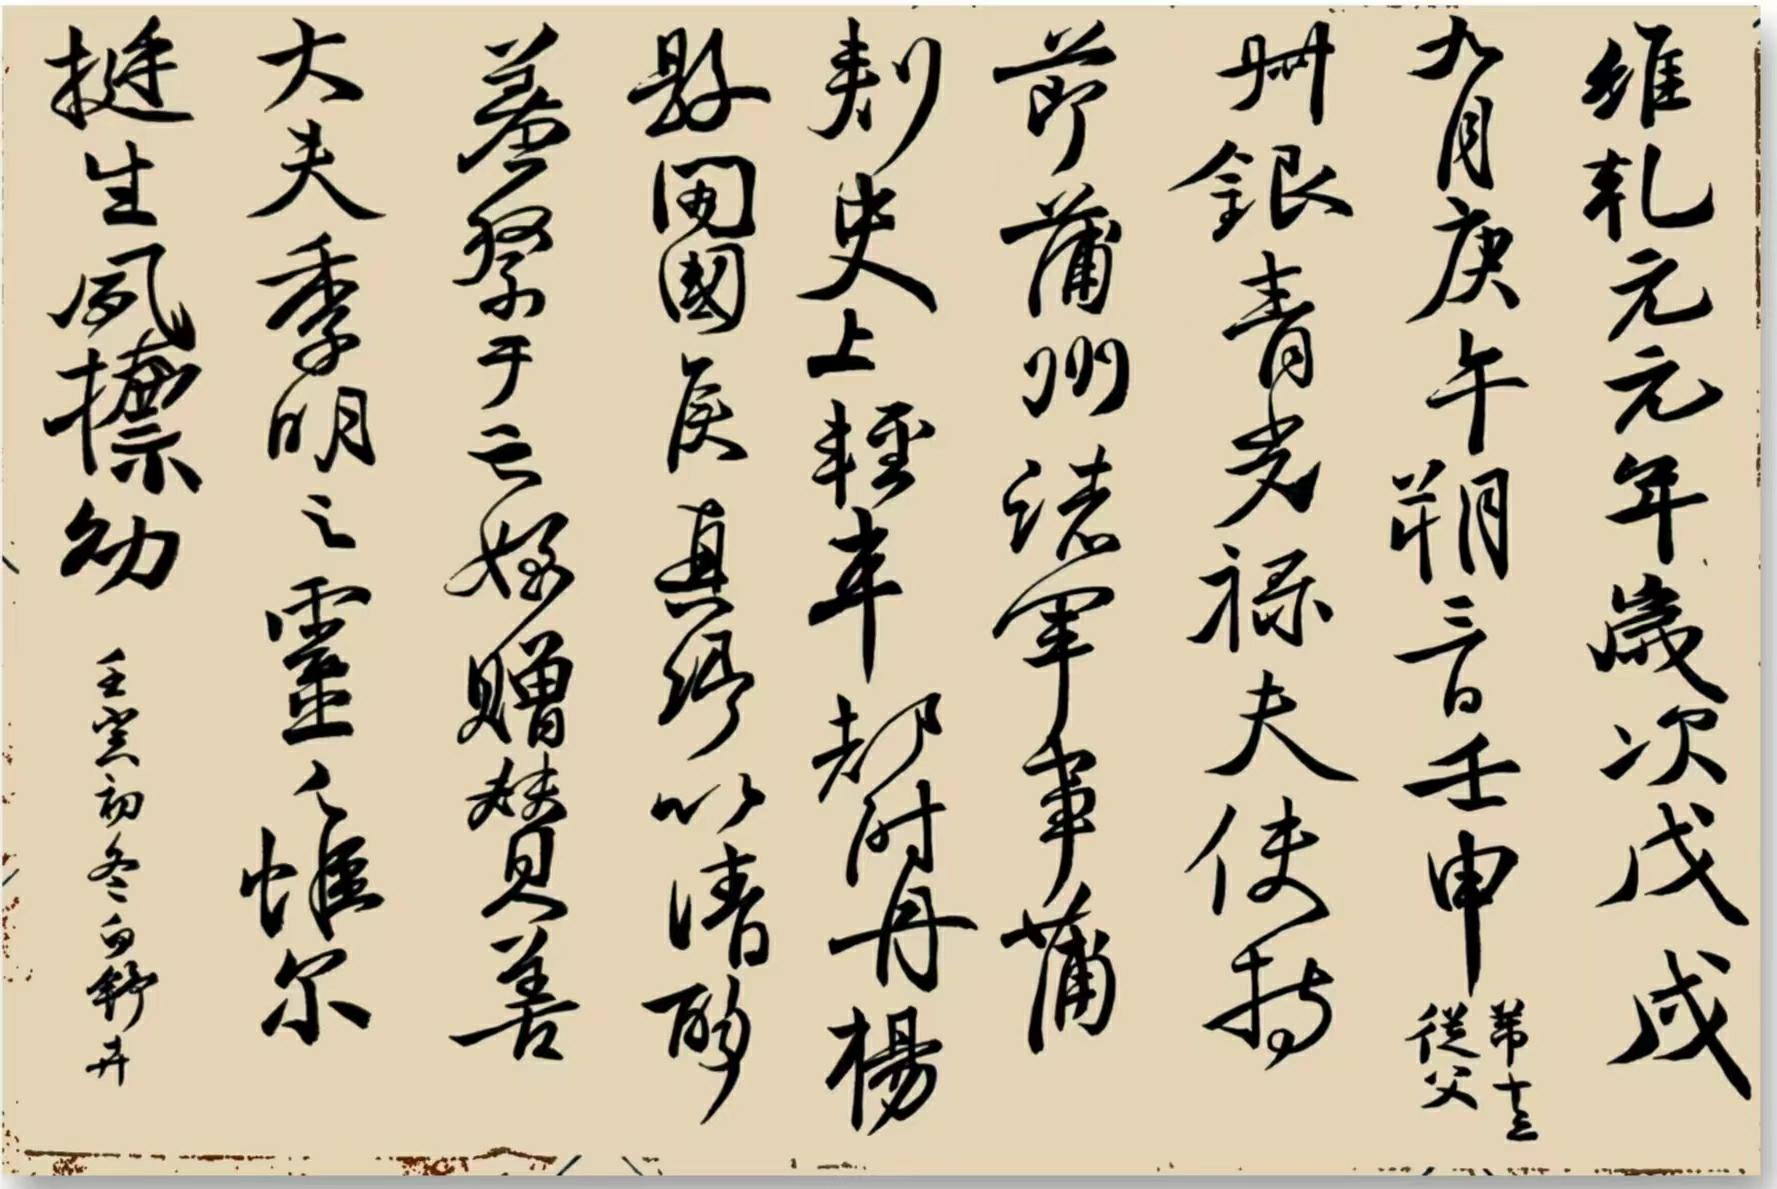 維乾元元年歲次戊戌
九月庚午朔三日壬申
第十三
從父
叔銀青光祿夫使持
節蒲州諸軍事蒲
刺史上輕車都尉丹楊
縣開國侯真卿以清酌
羞祭于亡姪贈贊善
大夫季明之靈曰惟爾
挺生夙標幼
壬寅初冬白舒卉